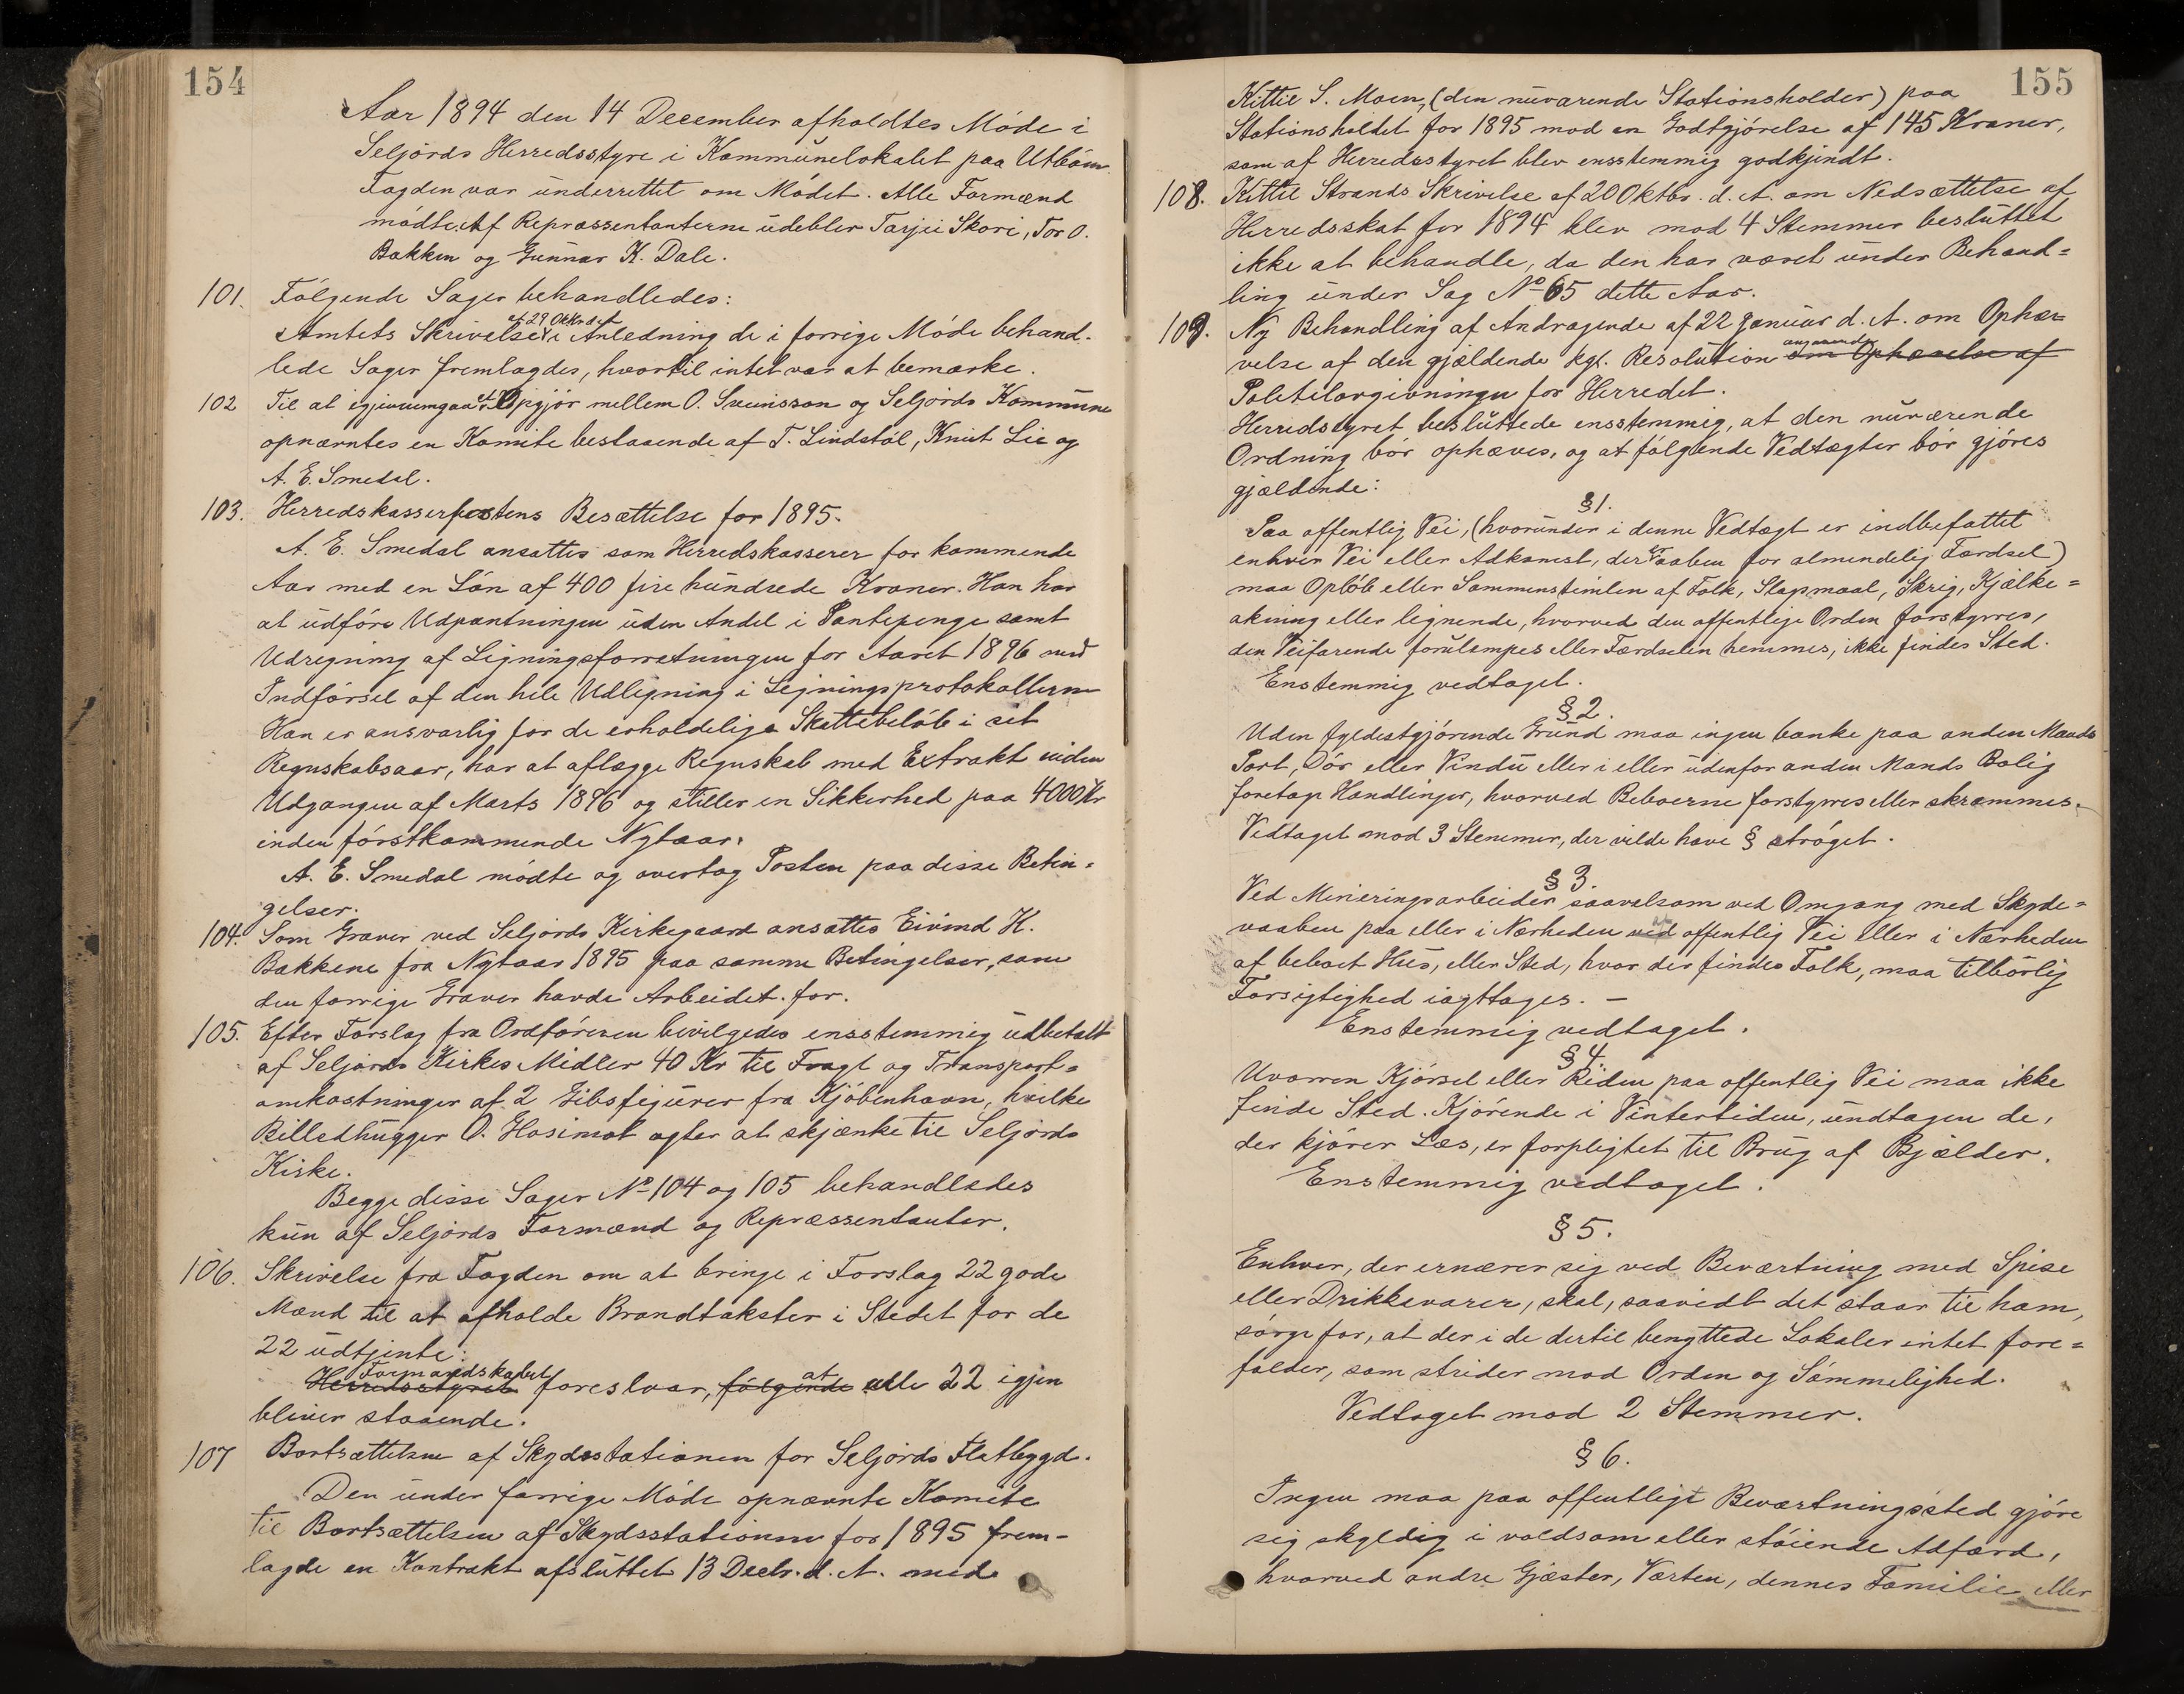 154
Aar 1894 den 14 December afholdtes Møde i
Seljords Herredsstyre i Kommunelokalet paa Utbøen
Fogden var underrettet om Mødet. Alle Formænd
mødte. Af Repræssentanterne udebler Tarjei Skori, Tor O.
Bakken og Gunnar K. Dale.
101. Følgende Sager behandledes:
af 29 Oktbr d. A.
Amtets Skrivelse i Anledning de i forrige Møde behand-
lede Sager fremlagdes, hvortil intet var at bemærke.
102 Til at igjennemgaa et Opgjør mellem O. Sveinsson og Seljords Kommune
opnævntes en Komite bestaaende af T. Lindstøl, Knut Lie og
A. E. Smedal.
103. Herredskasserpostens Besættelse for 1895.
A. E. Smedal ansattes som Herredskasserer for kommende
Aar med en Løn af 400 fire hundrede Kroner. Han har
at udføre Udpantningen uden Andel i Pantepenge samt
Udregning af Ligningsforretningen for Aaret 1896 med
Indførsel af den hele Udligning i Ligningsprotokollerne
Han er ansvarlig for de erholdelige Skattebeløb i sit
Regnskabsaar, har at aflægge Regnskab med Extrakt inden
Udgangen af Marts 1896 og stiller en Sikkerhed paa 4000 Kr
inden førstkommende Nytaar.
A. E. Smedal mødte og overtog Posten paa disse Betin-
gelser.
104. Som Graver ved Seljords Kirkegaard ansattes Eivind H.
Bakkene fra Nytaar 1895 paa samme Betingelser, som
den forrige Graver havde Arbeidet for.
105. Efter Forslag fra Ordføreren bevilgedes ensstemmig udbetalt
af Seljords Kirkes Midler 40 Kr til Fragt og Transport-
omkostninger af 2 Gibsfigurer fra Kjøbenhavn, hvilke
Billedhugger O. Hosimot agter at skjænke til Seljords
Kirke.
Begge disse Sager No 104 og 105 behandledes
kun af Seljords Formænd og Repræssentanter.
106. Skrivelse fra Fogden om at bringe i Forslag 22 gode
Mænd til at afholde Brandtakster i Stedet for de
22 udtjente:
Formandskabet at
Herredsstyret foreslaar, følgende alle 22 igjen
bliver staaende.
107 Bortsættelsen af Skydsstationen for Seljords Flatbygd.
Den under forrige Møde opnævnte Komite
til Bortsættelsen af Skydsstationen for 1895 frem-
lagde en Kontrakt afsluttet 13 Decbr. d. A. med
155
Kittil S. Moen, (den nuværende Stationsholder) paa
Stationsholdet for 1895 mod en Godtgjørelse af 145 Kroner,
som af Herredsstyret blev ensstemmig godkjendt.
108. Kittil Strands Skrivelse af 20 Oktbr. d. A. om Nedsættelse af
Herredsskat for 1894 blev mod 4 Stemmer besluttet
ikke at behandle, da den har været under Behand-
ling under Sag No 65 dette Aar.
109. Ny Behandling af Andragende af 22 Januar d. A. om Ophæ-
velse af den gjældende kgl. Resolution angaaende om Ophævelse af
Politilovgivningen for Herredet.
Herredstyret besluttede ensstemmig, at den nuværende
Ordning bør ophæves, og at følgende Vedtægter bør gjøres
gjældende:
§ 1.
Paa offentlig Vei, (hvorunder i denne Vedtægt er indbefattet
enhver Vei eller Adkomst, der er aaben for almindelig Færdsel)
maa Opløb eller Sammenstimlen af Folk, Slagsmaal, Skrig, Kjælke-
akning eller lignende, hvorved den offentlige Orden forstyrres,
den Veifarende forulempes eller Færdselen hemmes, ikke findes Sted.
Enstemmig vedtaget.
§ 2.
Uden fyldestgjørende Grund maa ingen banke paa anden Mands
Port, Dør eller Vindu eller i eller udenfor anden Mands Bolig
foretage Handlinger, hvorved Beboerne forstyrres eller skræmmes.
Vedtaget mod 3 Stemmer, der vilde have § strøget.
§ 3.
Ved Mineringsarbeider saavelsom ved Omgang med Skyde-
vaaben paa eller i Nærheden ved offentlig Vei eller i Nærheden
af beboet Hus, eller Sted, hvor der findes Folk, maa tilbørlig
Forsigtighed iagttages. —
Enstemmig vedtaget.
§ 4.
Uvorren Kjørsel eller Riden paa offentlig Vei maa ikke
finde Sted. Kjørende i Vintertiden, undtagen de,
der kjører Læs, er forpligtet til Brug af Bjælder.
Enstemmig vedtaget.
§ 5.
Enhver, der ernærer sig ved Beværtning med Spise
eller Drikkevarer, skal, saavidt det staar til ham,
sørge for, at der i de dertil benyttede Lokaler intet fore-
falder, som strider mod Orden og Sømmelighed.
Vedtaget mod 2 Stemmer.
§ 6.
Ingen maa paa offentligt Beværtningssted gjøre
sig skyldig i voldsom eller støiende Adfærd,
hvorved andre Gjæster, Værten, dennes Familie eller